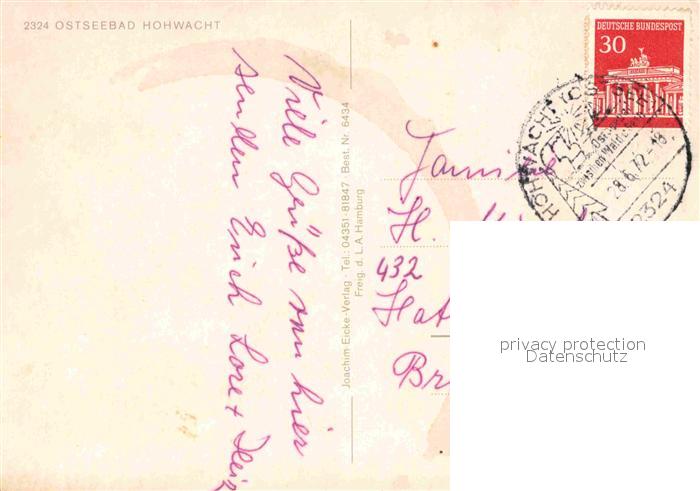 2324 OSTSEEBAD HOHWACHT
Viele Grüße von hier
senden Erich Lore +
Joachim Eicke-Verlag · Tel.: 04351-81847 · Best. Nr. 6434
Freig. d. L.A. Hamburg
DEUTSCHE BUNDESPOST
30
HOHWACHT (OSTSEE)
28.6.72-18
2324
Familie
H.
432
Hat
Br
privacy protection
Datenschutz